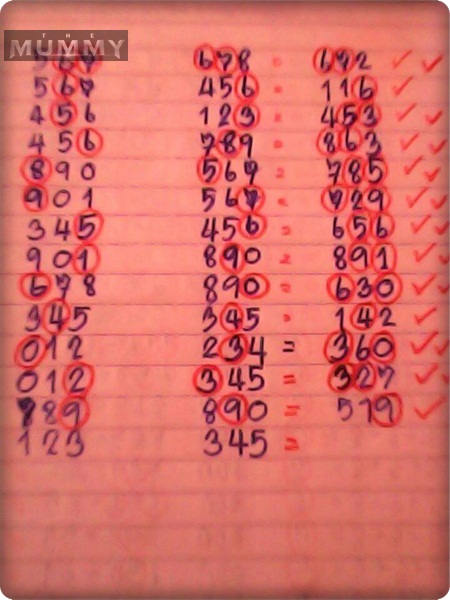 THE
MUMMY
567 678 = 672 ✓ ✓
567 456 = 116 ✓
456 123 = 453 ✓ ✓
456 789 = 863 ✓ ✓
890 567 = 785 ✓ ✓
901 567 = 729 ✓ ✓
345 456 = 656 ✓ ✓
901 890 = 891 ✓ ✓
678 890 = 630 ✓ ✓
345 345 = 142 ✓
012 234 = 360 ✓ ✓
012 345 = 327 ✓ ✓
789 890 = 519 ✓
123 345 =